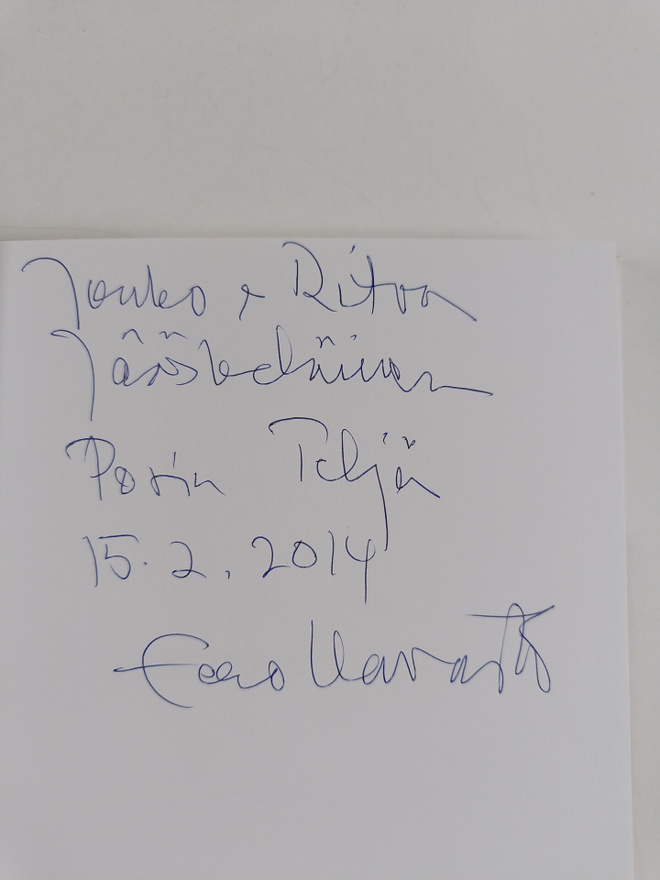 Jouko + Ritva
Jääskeläinen
Porin Teljä
15.2.2014
Eero